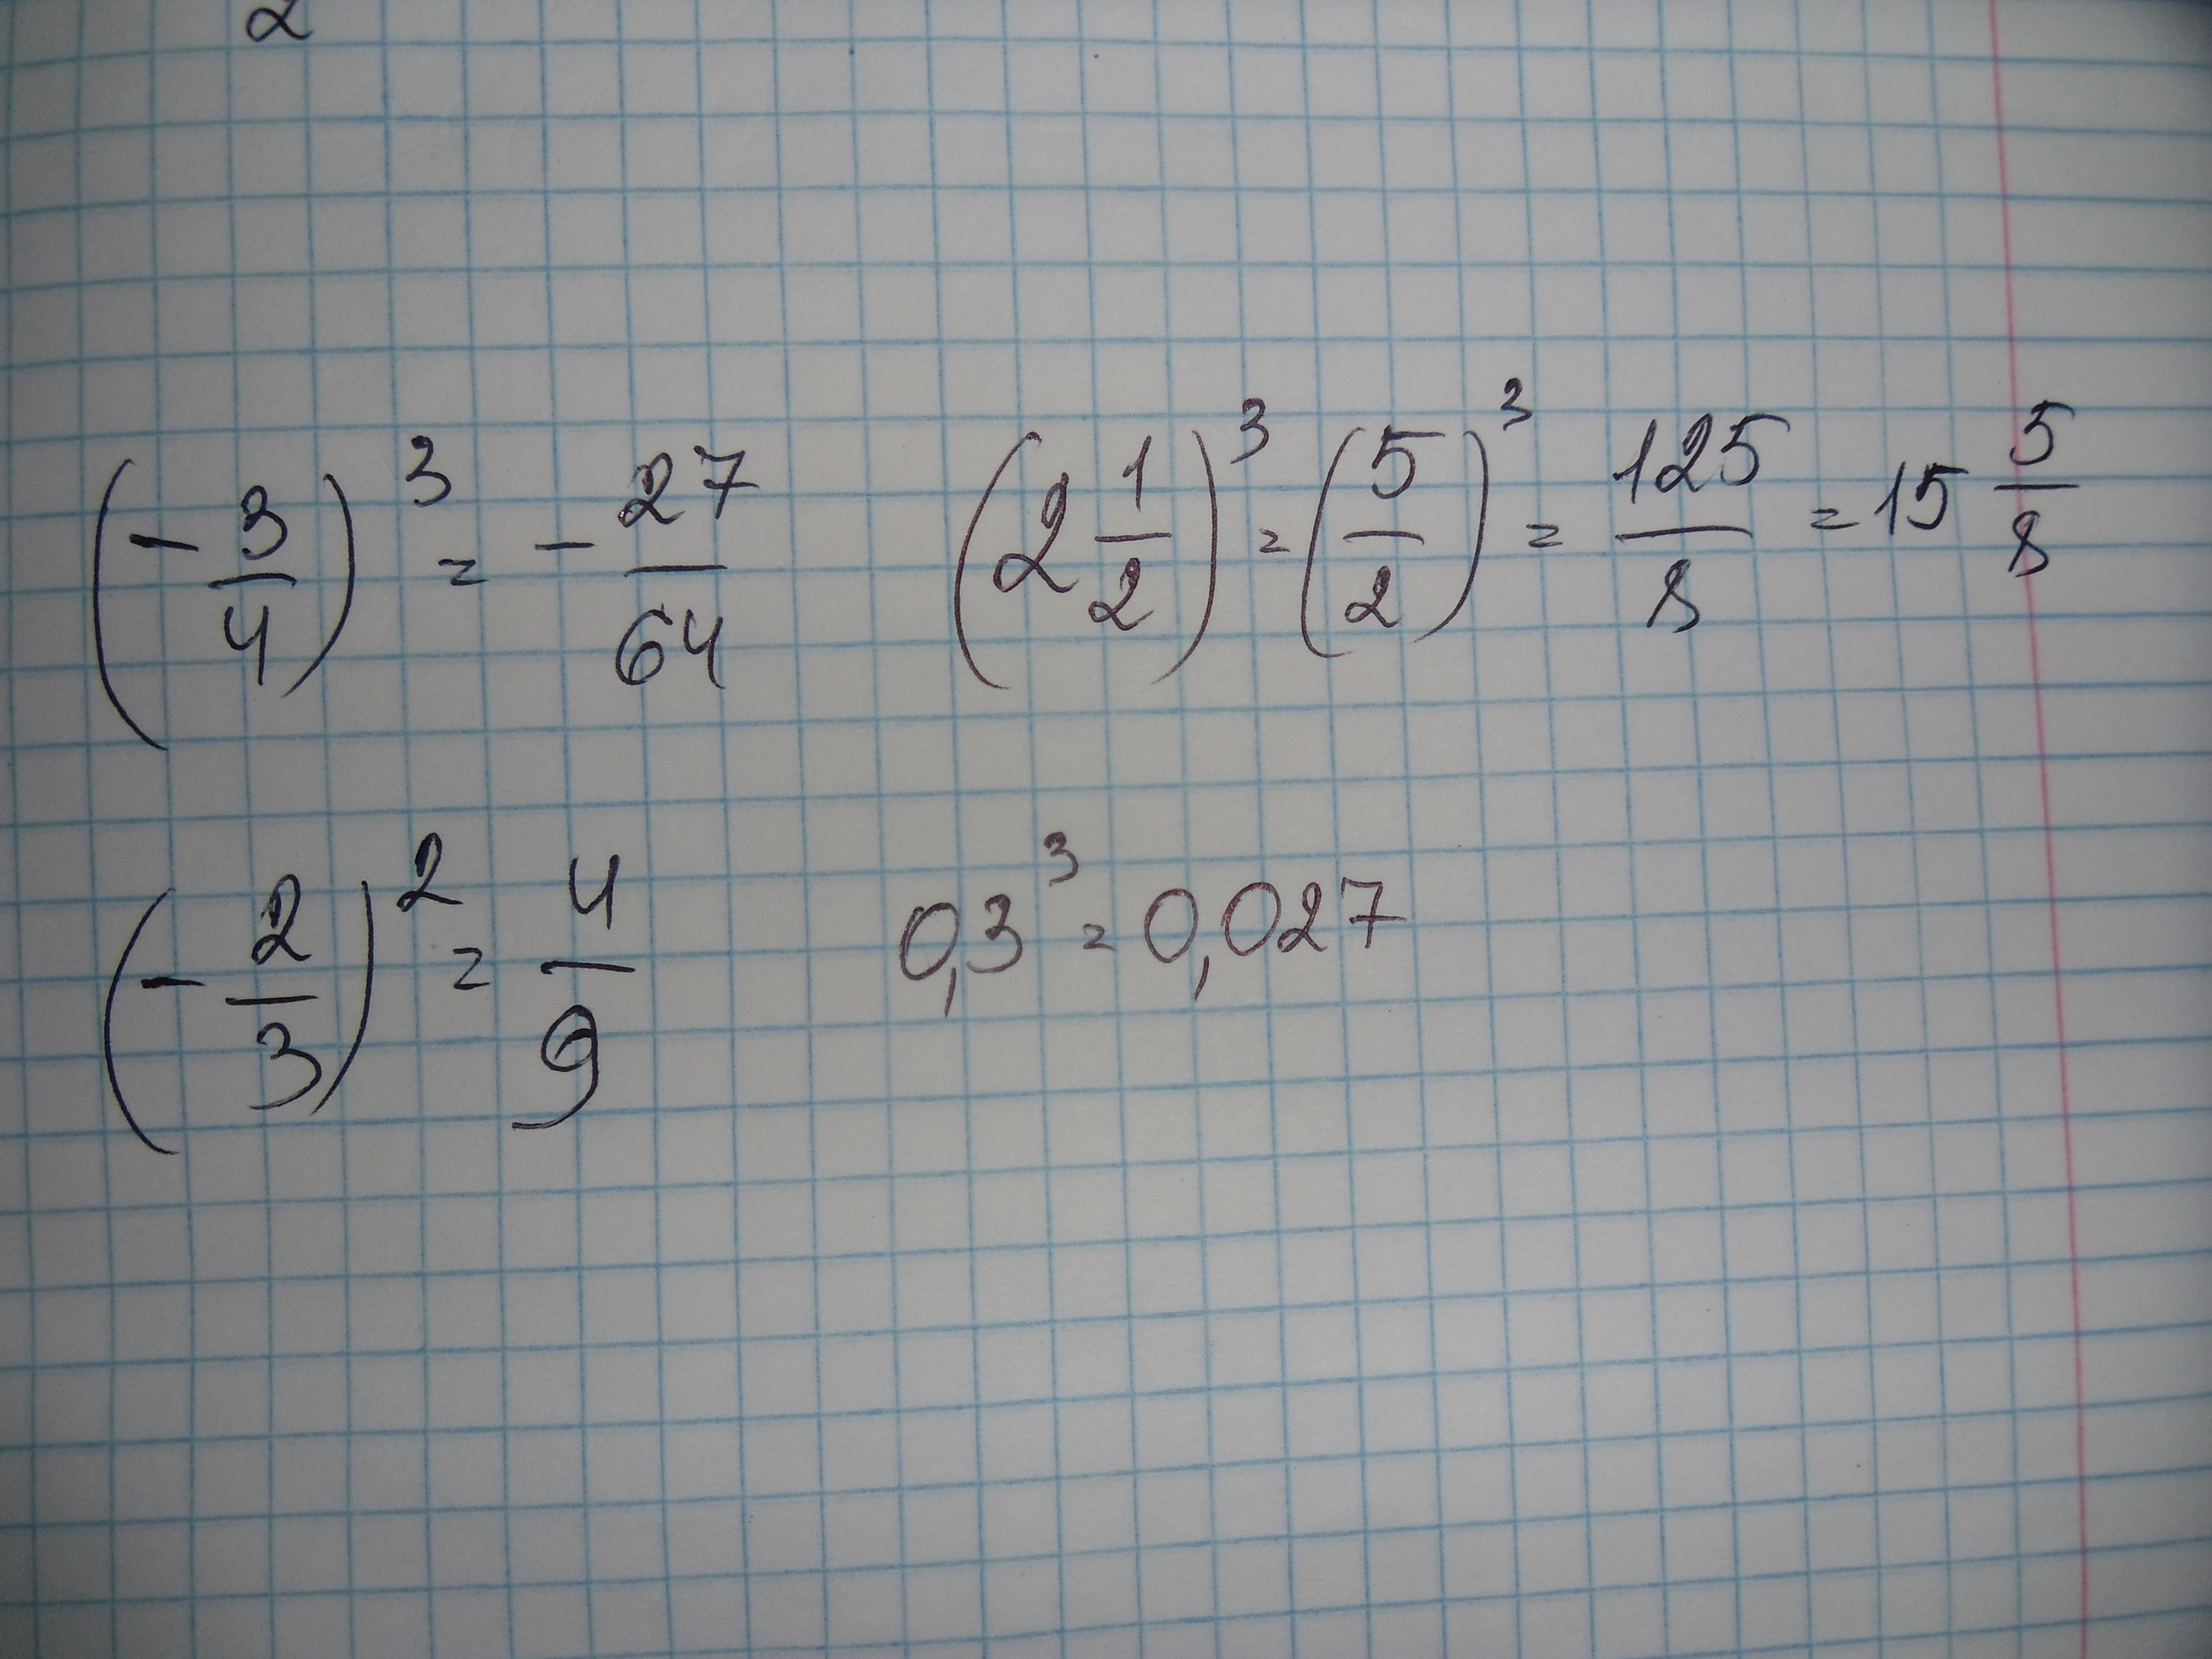 2
(-3/4)³ = -27/64 (2 1/2)³ = (5/2)³ = 125/8 = 15 5/8
(-2/3)² = 4/9 0,3³ = 0,027